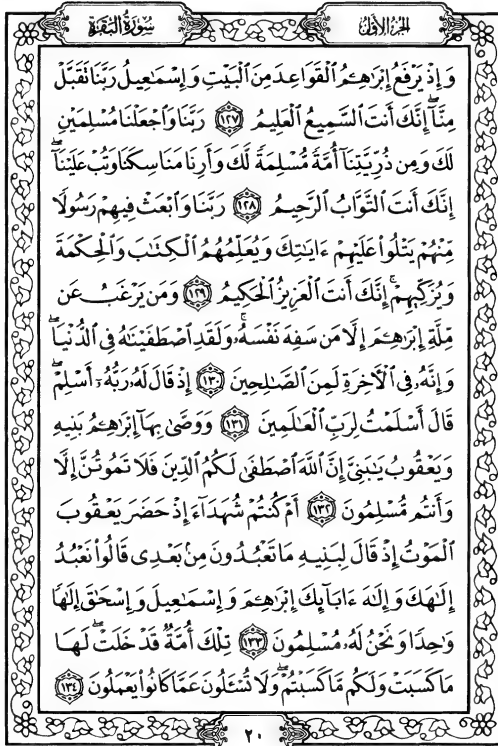 الجزء الأول
سورة البقرة
وَإِذْ يَرْفَعُ إِبْرَٰهِـۧمُ ٱلْقَوَاعِدَ مِنَ ٱلْبَيْتِ وَإِسْمَٰعِيلُ رَبَّنَا تَقَبَّلْ
مِنَّآ ۖ إِنَّكَ أَنتَ ٱلسَّمِيعُ ٱلْعَلِيمُ ١٢٧ رَبَّنَا وَٱجْعَلْنَا مُسْلِمَيْنِ
لَكَ وَمِن ذُرِّيَّتِنَآ أُمَّةً مُّسْلِمَةً لَّكَ وَأَرِنَا مَنَاسِكَنَا وَتُبْ عَلَيْنَآ ۖ
إِنَّكَ أَنتَ ٱلتَّوَّابُ ٱلرَّحِيمُ ١٢٨ رَبَّنَا وَٱبْعَثْ فِيهِمْ رَسُولًا
مِّنْهُمْ يَتْلُوا۟ عَلَيْهِمْ ءَايَٰتِكَ وَيُعَلِّمُهُمُ ٱلْكِتَٰبَ وَٱلْحِكْمَةَ
وَيُزَكِّيهِمْ ۚ إِنَّكَ أَنتَ ٱلْعَزِيزُ ٱلْحَكِيمُ ١٢٩ وَمَن يَرْغَبُ عَن
مِّلَّةِ إِبْرَٰهِـۧمَ إِلَّا مَن سَفِهَ نَفْسَهُۥ ۚ وَلَقَدِ ٱصْطَفَيْنَٰهُ فِى ٱلدُّنْيَا ۖ
وَإِنَّهُۥ فِى ٱلْءَاخِرَةِ لَمِنَ ٱلصَّٰلِحِينَ ١٣٠ إِذْ قَالَ لَهُۥ رَبُّهُۥٓ أَسْلِمْ ۖ
قَالَ أَسْلَمْتُ لِرَبِّ ٱلْعَٰلَمِينَ ١٣١ وَوَصَّىٰ بِهَآ إِبْرَٰهِـۧمُ بَنِيهِ
وَيَعْقُوبُ يَٰبَنِىَّ إِنَّ ٱللَّهَ ٱصْطَفَىٰ لَكُمُ ٱلدِّينَ فَلَا تَمُوتُنَّ إِلَّا
وَأَنتُم مُّسْلِمُونَ ١٣٢ أَمْ كُنتُمْ شُهَدَآءَ إِذْ حَضَرَ يَعْقُوبَ
ٱلْمَوْتُ إِذْ قَالَ لِبَنِيهِ مَا تَعْبُدُونَ مِنۢ بَعْدِى قَالُوا۟ نَعْبُدُ
إِلَٰهَكَ وَإِلَٰهَ ءَابَآئِكَ إِبْرَٰهِـۧمَ وَإِسْمَٰعِيلَ وَإِسْحَٰقَ إِلَٰهًا
وَٰحِدًا وَنَحْنُ لَهُۥ مُسْلِمُونَ ١٣٣ تِلْكَ أُمَّةٌ قَدْ خَلَتْ ۖ لَهَا
مَا كَسَبَتْ وَلَكُم مَّا كَسَبْتُمْ ۖ وَلَا تُسْـَٔلُونَ عَمَّا كَانُوا۟ يَعْمَلُونَ ١٣٤
٢٠